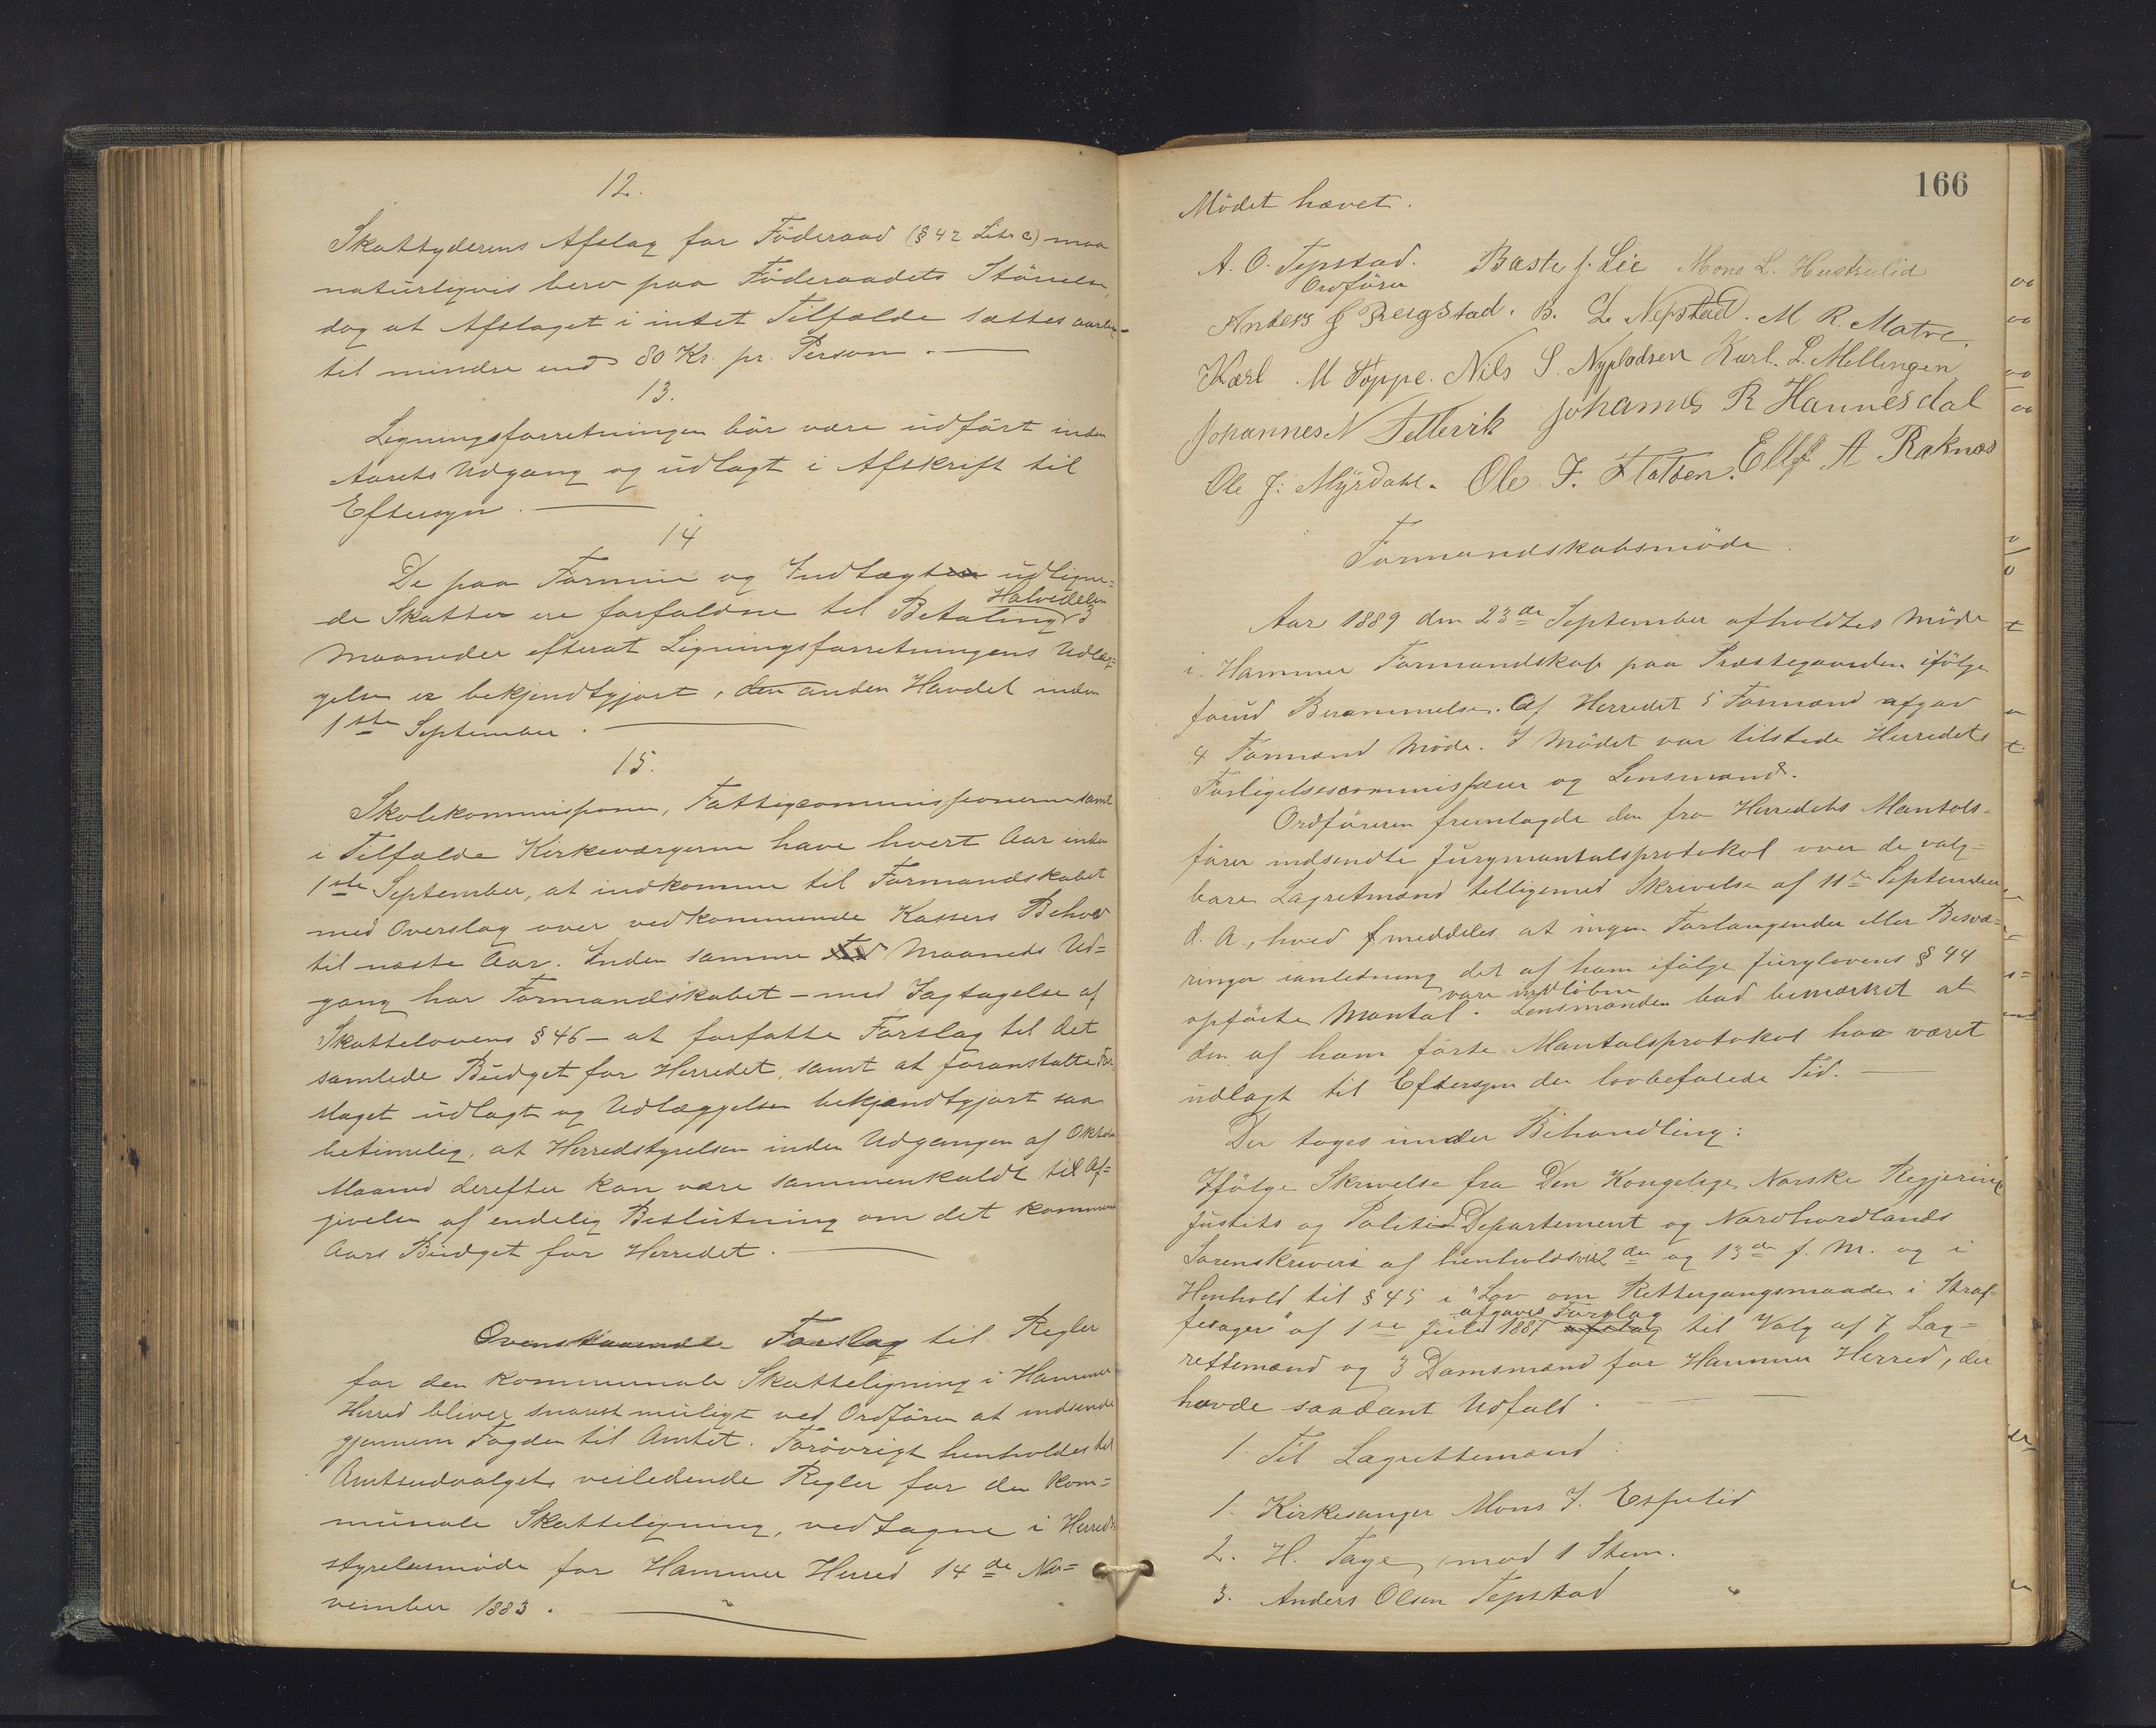 12.
Skattyderens Afslag for Föderaad (§ 42 Litr c) maa
naturligvis bero paa Föderaadets Störrelse,
dog at Afslaget i intet Tilfælde sættes
til mindre end 80 Kr. pr. Person.
13.
Ligningsforretningen bör være udfört inden
Aarets Udgang og udlagt i Afskrift til
Eftersyn.
14
De paa Formue og Indtægt udligne=
de Skatter ere forfaldne til Betaling Halvedelen 3
Maaneder efterat Ligningsforretningens Udlæg=
gelse er bekjendtgjort, den anden Havdel inden
1ste September.
15.
Skolekommissionen, Fattigcommissionerne samt
i Tilfælde Kirkeværgerne have hvert Aar inden
1ste September, at indkomme til Formandskabet
med Overslag over vedkommende Kassers Behov
til næste Aar. Inden samme Maaneds Ud=
gang har Formandskabet – med Iagtagelse af
Skattelovens § 46 – at forfatte Forslag til det
samlede Budget for Herredet, samt at foranstalte For
slaget udlagt og Udlæggelsen bekjendtgjort saa
betimelig, at Herredstyrelsen inden Udgangen af Oktober
Maaned derefter kan være sammenkaldt til Af=
givelse af endelig Beslutning om det kommende
Aars Budget for Herredet.
Ovenstaaende Forslag til Regler
for den kommunale Skatteligning i Hammer
Herred bliver snarest muligt ved Ordförer at indsende
gjennem Fogden til Amtet. Forövrigt henholdes til
Amtsudvalgets veiledende Regler for den kom=
munale Skatteligning, vedtagne i Herreds
styrelsesmöde for Hammer Herred 14de No=
vember 1883.
166
Mödet hævet.
A. O. Tepstad. Baste J. Lie Mons L. Hustrulid
Ordförer
Anders J Bergstad. B. L. Nepstad. M R. Matre.
Karl M Toppe. Nils S. Karl. L. Mellingen
Johannes N Tellevik Johannes R Hannesdal
Ole J: Myrdahl. Ole J. Flatöen. Ellef A Raknes
Formandskabsmöde.
Aar 1889 den 23de September afholdtes Möde
i Hammer Formandskab paa Præstegaarden ifölge
forud Berammelse. Af Herredets 5 Formænd afgav
4 Formænd Möde. I Mödet var tilstede Herredets
Forligelsescommissær og Lensmand.
Ordföreren fremlagde den fra Herredets Mantals=
förer indsendte Jurymantalsprotokol over de valg=
bare Lagretmænd telligemed Skrivelse af 11te September
d. A., hvad meddeles at ingen Forlangender eller Besvæ=
ringer ianledning det af ham ifölge Jurylovens § 44
opförte Mantal vare indlöbne. Lensmanden bad bemærket at
den af ham förte Mantalsprotokol har været
udlagt til Eftersyn den lovbefalede Tid.
Der toges under Behandling:
Ifölge Skrivelse fra Den Kongelige Norske Regjerings
Justits og Politi Departement og Nordhordlands
Sorenskriveri af henholdsvis 2den og 13de f. M. og i
Henhold til § 45 i "Lov om Rettergangsmaaden i Straf-
fesager" af 1ste Juli 1887 afgaves Forslag til Valg af 7 Lag=
rettemænd og 3 Domsmænd for Hammer Herred, der
havde saadant Udfald.
1. Til Lagrettemænd:
1. Kirkesanger Mons J. Espelid
2. H. Tage, mod 1 Stem.
3. Anders Olsen Tepstad "